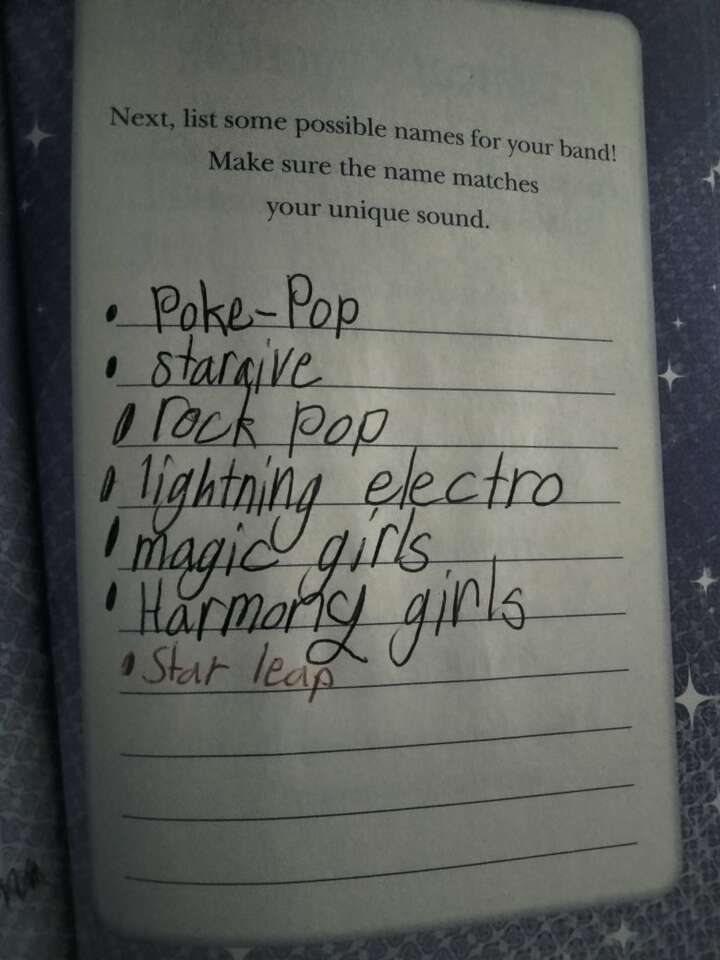 Next, list some possible names for your band!
Make sure the name matches
your unique sound.
• Poke-Pop
• stargive
• rock pop
• lightning electro
• magic girls
• Harmony girls
• Star leap